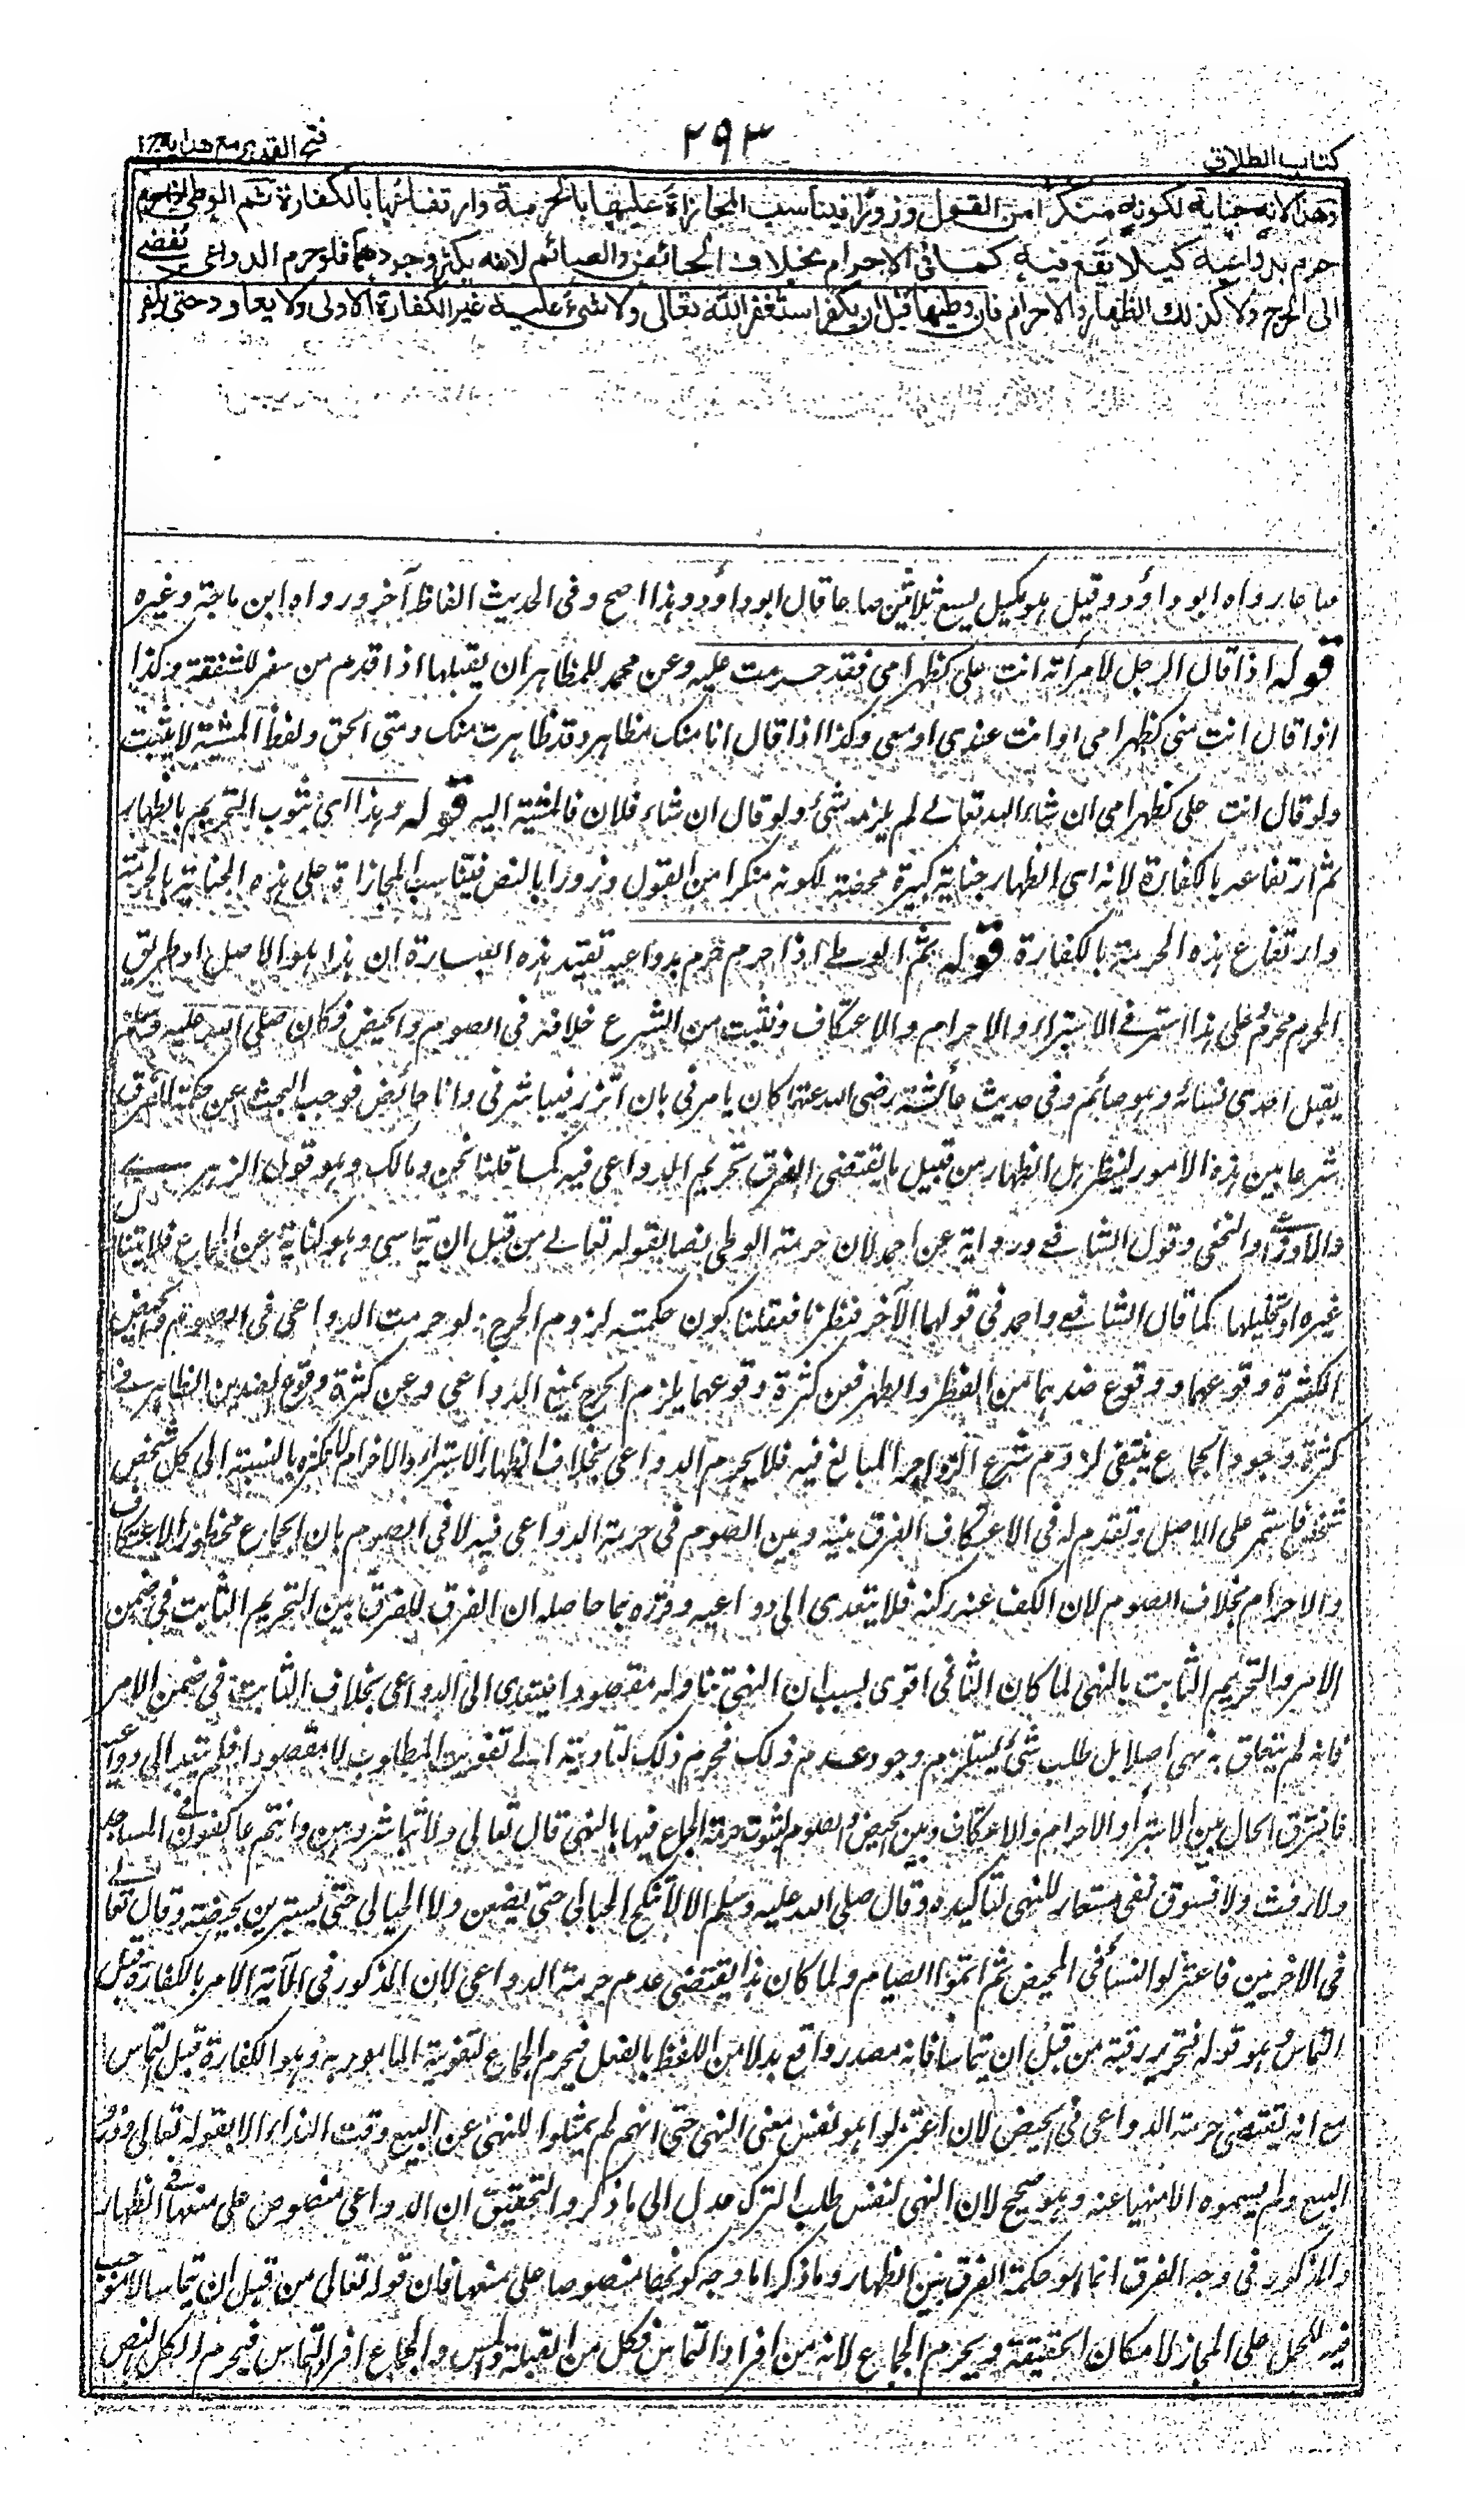 كتاب الطلاق
٢٩٣
فتح القدير مع هدايه ج٢
وهذا لانه جناية لكونه منكرا من القول وزورا فيناسب المجازاة عليها بالحرمة وارتفاعها بالكفارة ثم الوطي اذا حرم
حرم بدواعيه كيلا يقع فيه كما في الاحرام بخلاف الحائض والصائم لانه يكثر وجودهما فلو حرم الدواعي يفضي
الى الحرج ولا كذلك الظهار والاحرام فان وطيها قبل ان يكفر استغفر الله تعالى ولا شيء عليه غير الكفارة الاولى ولا يعاود حتى يكفر
صاعا رواه ابو داؤد وقيل هو مكيل يسع ثلاثين صاعا قال ابو داؤد وهذا اصح وفي الحديث الفاظ آخر ورواه ابن ماجة وغيره
قوله اذا قال الرجل لامرأته انت علي كظهر امي فقد حرمت عليه وعن محمد للمظاهر ان يقبلها اذا قدم من سفر للشفقة وكذا
اذا قال انت مني كظهر امي او انت عندي او معي وكذا اذا قال انا منك مظاهر وقد ظاهرت منك ومتى الحق ولفظ المشية لا يثبت
ولو قال انت علي كظهر امي ان شاء الله تعالے لم يلزمه شئ ولو قال ان شاء فلان فالمشية اليه قوله وهذا اى ثبوت التحريم بالظهار
ثم ارتفاعه بالكفارة لانه اى الظهار جناية كبيرة محضة لكونه منكرا من القول وزورا بالنص فيناسب المجازاة على هذه الجناية بالحرمة
وارتفاع هذه الحرمة بالكفارة قوله ثم الوطے اذا حرم حرم بدواعيه تفيد هذه العبارة ان هذا هو الاصل اذ طريق
المحرم محرم وعلى هذا استمر فے الاستبراء والاحرام والاعتكاف وثبت من الشرع خلافه في الصوم والحيض فكان صلى الله عليه وسلم
يقبل احدى نسائه وهو صائم وفي حديث عائشة رضي الله عنها كان يامرني بان اتزر فيباشرني وانا حائض فوجب البحث عن حكمة الفرق
شرعا بين هذه الامور لينظر هل الظهار من قبيل ما يقتضي الفرق تحريم الدواعي فيه كما قلنا نحن ومالك وهو قول الزهرے
والاوزاعي والنخعي وقول الشافعے ورواية عن احمد لان حرمة الوطي نصا بقوله تعالے من قبل ان يتماسا وهو كناية عن الجماع فلا يتناول
غيره او تحليلها كما قال الشافعے واحمد في قولهما الآخر فنظرنا فعقلنا كون حكمته لزوم الحرج لو حرمت الدواعي في الصوم والحيض
لكثرة وقوعهما ووقوع ضدهما من الفطر والطهر فعن كثرة وقوعهما يلزم الحرج بمنع الدواعي وعن كثرة وقوع الضدين الظاهر فے
كثرة وجود الجماع ينتفي لزوم شرع الزواجر المبالغ فيه فلا يحرم الدواعي بخلاف الظهار والاستبراء والاحرام بالنسبة الى كل شخص
شخص فاستمر على الاصل وتقدم له في الاعتكاف الفرق بينه وبين الصوم في حرمة الدواعي فيه لا في الصوم بان الجماع محظور الاعتكاف
والاحرام بخلاف الصوم لان الكف عنه ركنه فلا يتعدى الى دواعيه وقرره بما حاصله ان الفرق للفرق بين التحريم الثابت في ضمن
الامر والتحريم الثابت بالنهى لما كان الثاني اقوى بسبب ان النهى تناوله مقصودا فيتعدى الى الدواعي بخلاف الثابت في ضمن الامر
فانه لم يتعلق به نهي اصلا بل طلب شئ يستلزم وجوده عدم ذلك فحرم ذلك لتاديته الے تفويت المطلوب لا مقصودا فلم يتعد الى دواعيه
فافترق الحال بين الاستبراء والاحرام والاعتكاف وبين الحيض والصوم لثبوت حرمة الجماع فيها بالنهى قال تعالى ولا تباشروهن وانتم عاكفون في المساجد
ولا رفث ولا فسوق نفي مستعار للنهى لتاكيده وقال صلى الله عليه وسلم الا لا تنكح الحبالى حتى يضعن ولا الحيالى حتى يستبرئن بحيضة وقال تعالے
في الاخرين فاعتزلوا النساء في المحيض ثم اتموا الصيام ولما كان هذا يقتضي عدم حرمة الدواعي لان المذكور في الآية الامر بالكفارة قبل
التماس وهو قوله فتحرير رقبة من قبل ان يتماسا فانه مصدر واقع بدلا من اللفظ بالفعل فيحرم الجماع لتفويته المامور به وهو الكفارة قبل التماس
مع انه يقتضي حرمة الدواعي في الحيض لان اعتزلوا هو نفس معنى النهي حتى انهم لم يمثلوا للنهى عن البيع وقت النداء الا بقوله تعالى وذروا
البيع ولم يسموه الا منهيا عنه وهو صحيح لان النهي لنفس طلب الترك عدل الى ما ذكر والتحقيق ان الدواعي منصوص على منعها في الظهار
والمذكور في وجه الفرق انما هو حكمة الفرق بين الظهار وما ذكر اما وجه كونها منصوصا على منعها فان قوله تعالى من قبل ان يتماسا لا موجب
فيه للحمل على المجاز لامكان الحقيقة ويحرم الجماع لانه من افراد التماس فكل من القبلة والمس والجماع افراد التماس فيحرم الكل بالنص